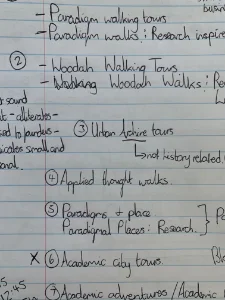 busin
- Paradigm walking tours
- Paradigm walks: Research inspire
② - Woodah Walking Tours
- Woodah Walks: Re
r sound
t - alliterates -
sed to pounds -
icates small and
onal.
③ Urban tours
↳ not history related.
④ Applied thought walks.
⑤ Paradigms + place
Paradigmal Places: Research. } Pa
X ⑥ Academic city tours. Bl
⑦ Academic adventures / Academic